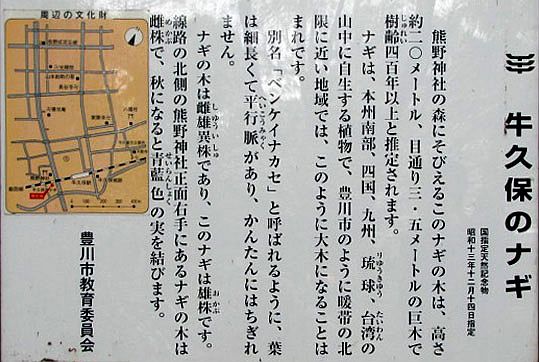 牛久保のナギ
国指定天然記念物
昭和十三年十二月十四日指定
熊野神社の森にそびえるこのナギの木は、高さ
約二〇メートル、目通り三・五メートルの巨木で
樹齢四百年以上と推定されます。
ナギは、本州南部、四国、九州、琉球、台湾の
山中に自生する植物で、豊川市のように暖帯の北
限に近い地域では、このように大木になることは
まれです。
別名「ベンケイナカセ」と呼ばれるように、葉
は細長くて平行脈があり、かんたんにはちぎれ
ません。
ナギの木は雌雄異株であり、このナギは雄株です。
線路の北側の熊野神社正面右手にあるナギの木は
雌株で、秋になると青藍色の実を結びます。
豊川市教育委員会
周辺の文化財